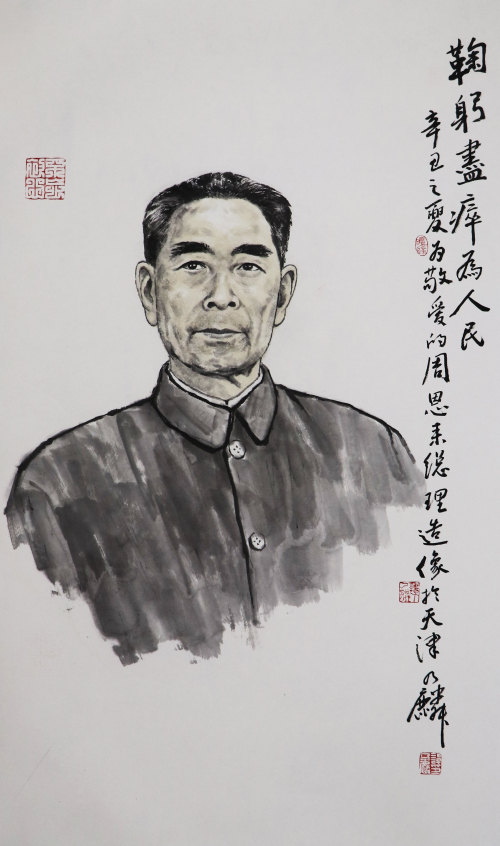 鞠躬盡瘁為人民
辛丑之夏为敬爱的周恩来總理造像於天津乃麟